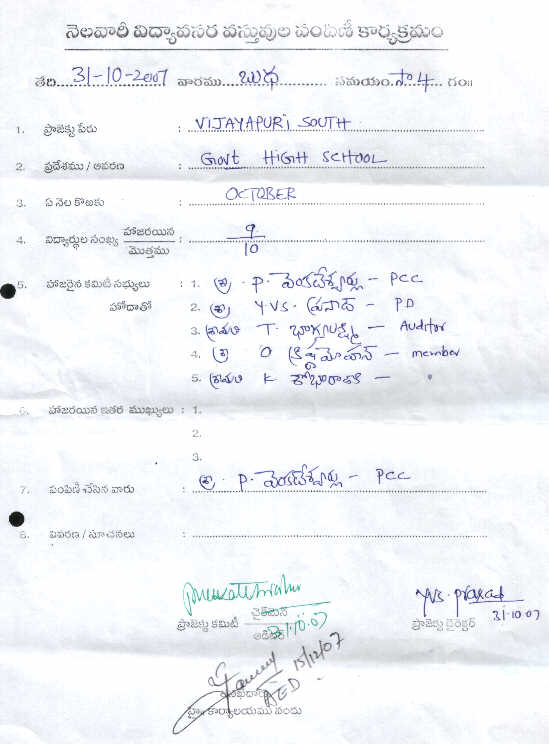 నెలవారీ విద్యావసర వస్తువుల పంపిణీ కార్యక్రమం
తేది. 31-10-2007 వారము బుధ సమయం. సా 4 గం॥
1. ప్రాజెక్టు పేరు : VIJAYAPURI SOUTH
2. ప్రదేశము / ఆవరణ : Govt HIGH SCHOOL
3. ఏ నెల కొఱకు : OCTOBER
4. విద్యార్థుల సంఖ్య హాజరయిన / మొత్తము : 9 / 10
5. హాజరైన కమిటీ సభ్యులు : 1. శ్రీ. P. వెంకటేశ్వర్లు - PCC
హోదాతో 2. శ్రీ YVS. ప్రసాద్ - PD
3. శ్రీమతి T. భాగ్యలక్ష్మి - Auditor
4. శ్రీ O క్రిష్ణమోహన్ - member
5. శ్రీమతి K శోభారాణి - "
6. హాజరయిన ఇతర ముఖ్యులు : 1.
2.
3.
7. పంపిణి చేసిన వారు : శ్రీ. P. వెంకటేశ్వర్లు - PCC
8. వివరణ / సూచనలు :
చైర్మెన్
YVS. prasad
ప్రాజెక్టు కమిటీ 31.10.07
ప్రాజెక్టు డైరెక్టర్ 31.10.07
15/12/07
AED
కార్యాలయము నందు